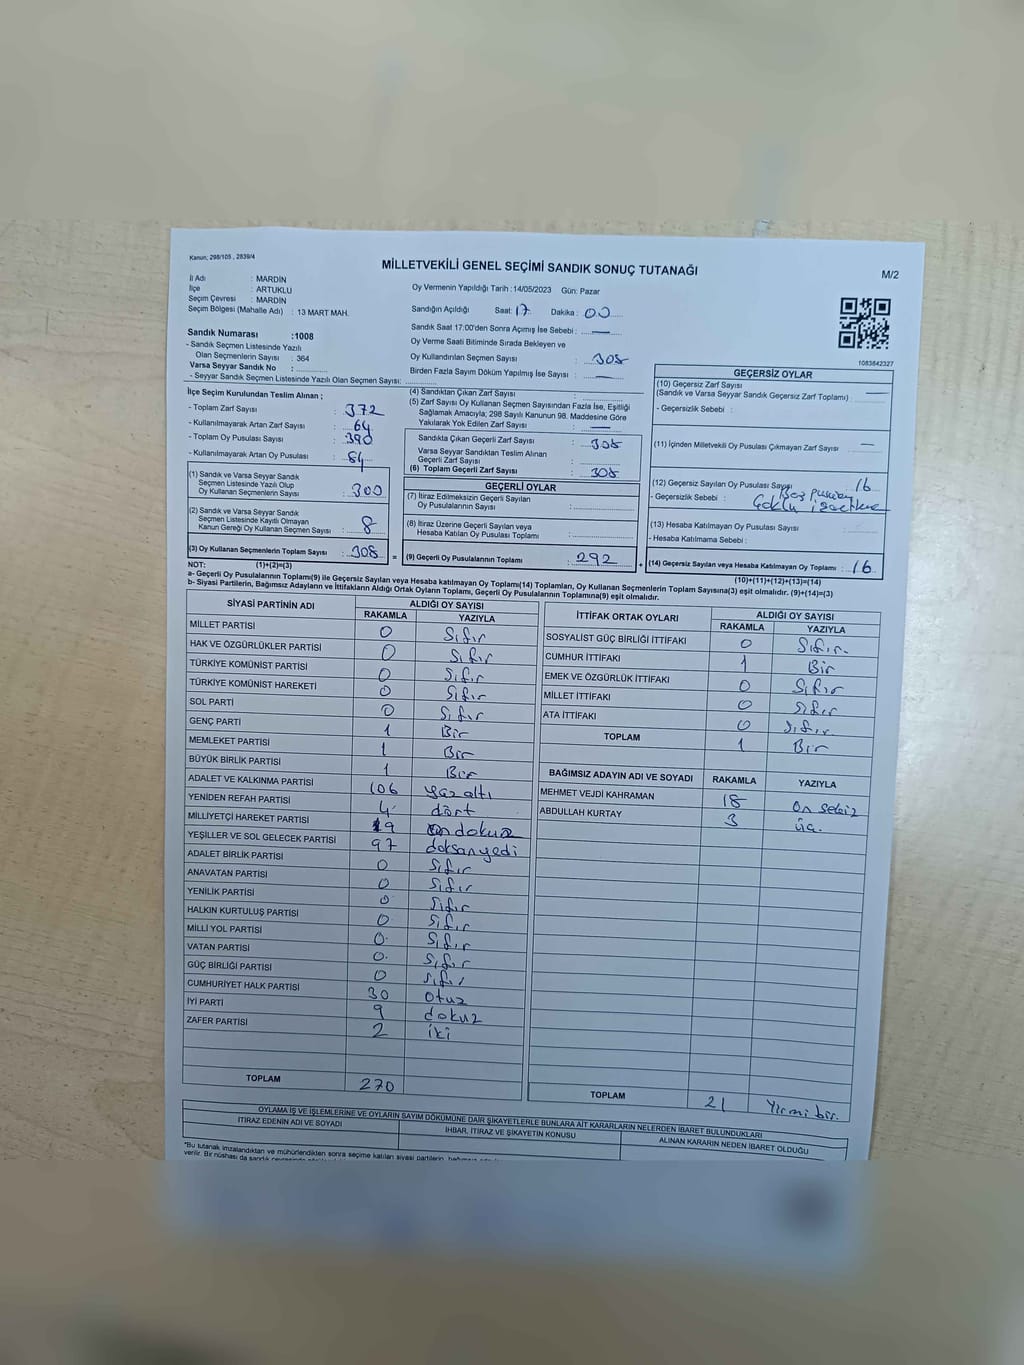 Kanun; 298/105 , 2839/4
MİLLETVEKİLİ GENEL SEÇİMİ SANDIK SONUÇ TUTANAĞI
M/2
İl Adı : MARDİN
İlçe : ARTUKLU
Seçim Çevresi : MARDİN
Seçim Bölgesi (Mahalle Adı) : 13 MART MAH.
Sandık Numarası :1008
- Sandık Seçmen Listesinde Yazılı
Olan Seçmenlerin Sayısı : 364
Varsa Seyyar Sandık No :
- Seyyar Sandık Seçmen Listesinde Yazılı Olan Seçmen Sayısı:
Oy Vermenin Yapıldığı Tarih :14/05/2023 Gün: Pazar
Sandığın Açıldığı Saat: 17 Dakika : 00
Sandık Saat 17:00'den Sonra Açımış İse Sebebi : —
Oy Verme Saati Bitiminde Sırada Bekleyen ve
Oy Kullandırılan Seçmen Sayısı : 308
Birden Fazla Sayım Döküm Yapılmış İse Sayısı : —
1083842327
İlçe Seçim Kurulundan Teslim Alınan ;
- Toplam Zarf Sayısı : 372
- Kullanılmayarak Artan Zarf Sayısı : 64
- Toplam Oy Pusulası Sayısı : 390
- Kullanılmayarak Artan Oy Pusulası : 84
(1) Sandık ve Varsa Seyyar Sandık
Seçmen Listesinde Yazılı Olup
Oy Kullanan Seçmenlerin Sayısı : 300
(2) Sandık ve Varsa Seyyar Sandık
Seçmen Listesinde Kayıtlı Olmayan
Kanun Gereği Oy Kullanan Seçmen Sayısı : 8
(3) Oy Kullanan Seçmenlerin Toplam Sayısı : 308
(4) Sandıktan Çıkan Zarf Sayısı :
(5) Zarf Sayısı Oy Kullanan Seçmen Sayısından Fazla İse, Eşitliği
Sağlamak Amacıyla; 298 Sayılı Kanunun 98. Maddesine Göre
Yakılarak Yok Edilen Zarf Sayısı : —
Sandıkta Çıkan Geçerli Zarf Sayısı : 308
Varsa Seyyar Sandıktan Teslim Alınan
Geçerli Zarf Sayısı :
(6) Toplam Geçerli Zarf Sayısı : 308
GEÇERLİ OYLAR
(7) İtiraz Edilmeksizin Geçerli Sayılan
Oy Pusulalarının Sayısı :
(8) İtiraz Üzerine Geçerli Sayılan veya
Hesaba Katılan Oy Pusulası Toplamı :
= (9) Geçerli Oy Pusulalarının Toplamı : 292
GEÇERSİZ OYLAR
(10) Geçersiz Zarf Sayısı
(Sandık ve Varsa Seyyar Sandık Geçersiz Zarf Toplamı) : —
- Geçersizlik Sebebi :
(11) İçinden Milletvekili Oy Pusulası Çıkmayan Zarf Sayısı : —
(12) Geçersiz Sayılan Oy Pusulası Sayısı : 16
- Geçersizlik Sebebi :
(13) Hesaba Katılmayan Oy Pusulası Sayısı :
- Hesaba Katılmama Sebebi :
+ (14) Geçersiz Sayılan veya Hesaba Katılmayan Oy Toplamı : 16
NOT: (1)+(2)=(3)
(10)+(11)+(12)+(13)=(14)
a- Geçerli Oy Pusulalarının Toplamı(9) ile Geçersiz Sayılan veya Hesaba katılmayan Oy Toplamı(14) Toplamları, Oy Kullanan Seçmenlerin Toplam Sayısına(3) eşit olmalıdır. (9)+(14)=(3)
b- Siyasi Partilerin, Bağımsız Adayların ve İttifakların Aldığı Ortak Oyların Toplamı, Geçerli Oy Pusulalarının Toplamına(9) eşit olmalıdır.
SİYASİ PARTİNİN ADI ALDIĞI OY SAYISI
RAKAMLA YAZIYLA
MİLLET PARTİSİ 0 Sıfır
HAK VE ÖZGÜRLÜKLER PARTİSİ 0 Sıfır
TÜRKİYE KOMÜNİST PARTİSİ 0 Sıfır
TÜRKİYE KOMÜNİST HAREKETİ 0 Sıfır
SOL PARTİ 0 Sıfır
GENÇ PARTİ 1 Bir
MEMLEKET PARTİSİ 1 Bir
BÜYÜK BİRLİK PARTİSİ 1 Bir
ADALET VE KALKINMA PARTİSİ 106 Yüz altı
YENİDEN REFAH PARTİSİ 4 dört
MİLLİYETÇİ HAREKET PARTİSİ 19 on dokuz
YEŞİLLER VE SOL GELECEK PARTİSİ 97 doksanyedi
ADALET BİRLİK PARTİSİ 0 Sıfır
ANAVATAN PARTİSİ 0 Sıfır
YENİLİK PARTİSİ 0 Sıfır
HALKIN KURTULUŞ PARTİSİ 0 Sıfır
MİLLİ YOL PARTİSİ 0 Sıfır
VATAN PARTİSİ 0 Sıfır
GÜÇ BİRLİĞİ PARTİSİ 0 Sıfır
CUMHURİYET HALK PARTİSİ 30 Otuz
İYİ PARTİ 9 dokuz
ZAFER PARTİSİ 2 iki
TOPLAM 270
İTTİFAK ORTAK OYLARI ALDIĞI OY SAYISI
RAKAMLA YAZIYLA
SOSYALİST GÜÇ BİRLİĞİ İTTİFAKI 0 Sıfır
CUMHUR İTTİFAKI 1 Bir
EMEK VE ÖZGÜRLÜK İTTİFAKI 0 Sıfır
MİLLET İTTİFAKI 0 Sıfır
ATA İTTİFAKI 0 Sıfır
TOPLAM 1 Bir
BAĞIMSIZ ADAYIN ADI VE SOYADI RAKAMLA YAZIYLA
MEHMET VEJDİ KAHRAMAN 18 On sekiz
ABDULLAH KURTAY 3 üç
TOPLAM 21 Yirmi bir.
OYLAMA İŞ VE İŞLEMLERİNE VE OYLARIN SAYIM DÖKÜMÜNE DAİR ŞİKAYETLERLE BUNLARA AİT KARARLARIN NELERDEN İBARET BULUNDUKLARI
İTİRAZ EDENİN ADI VE SOYADI İHBAR, İTİRAZ VE ŞİKAYETİN KONUSU ALINAN KARARIN NEDEN İBARET OLDUĞU
*Bu tutanak imzalandıktan ve mühürlendikten sonra seçime katılan siyasi partilerin,
verilir. Bir nüshası da sandık